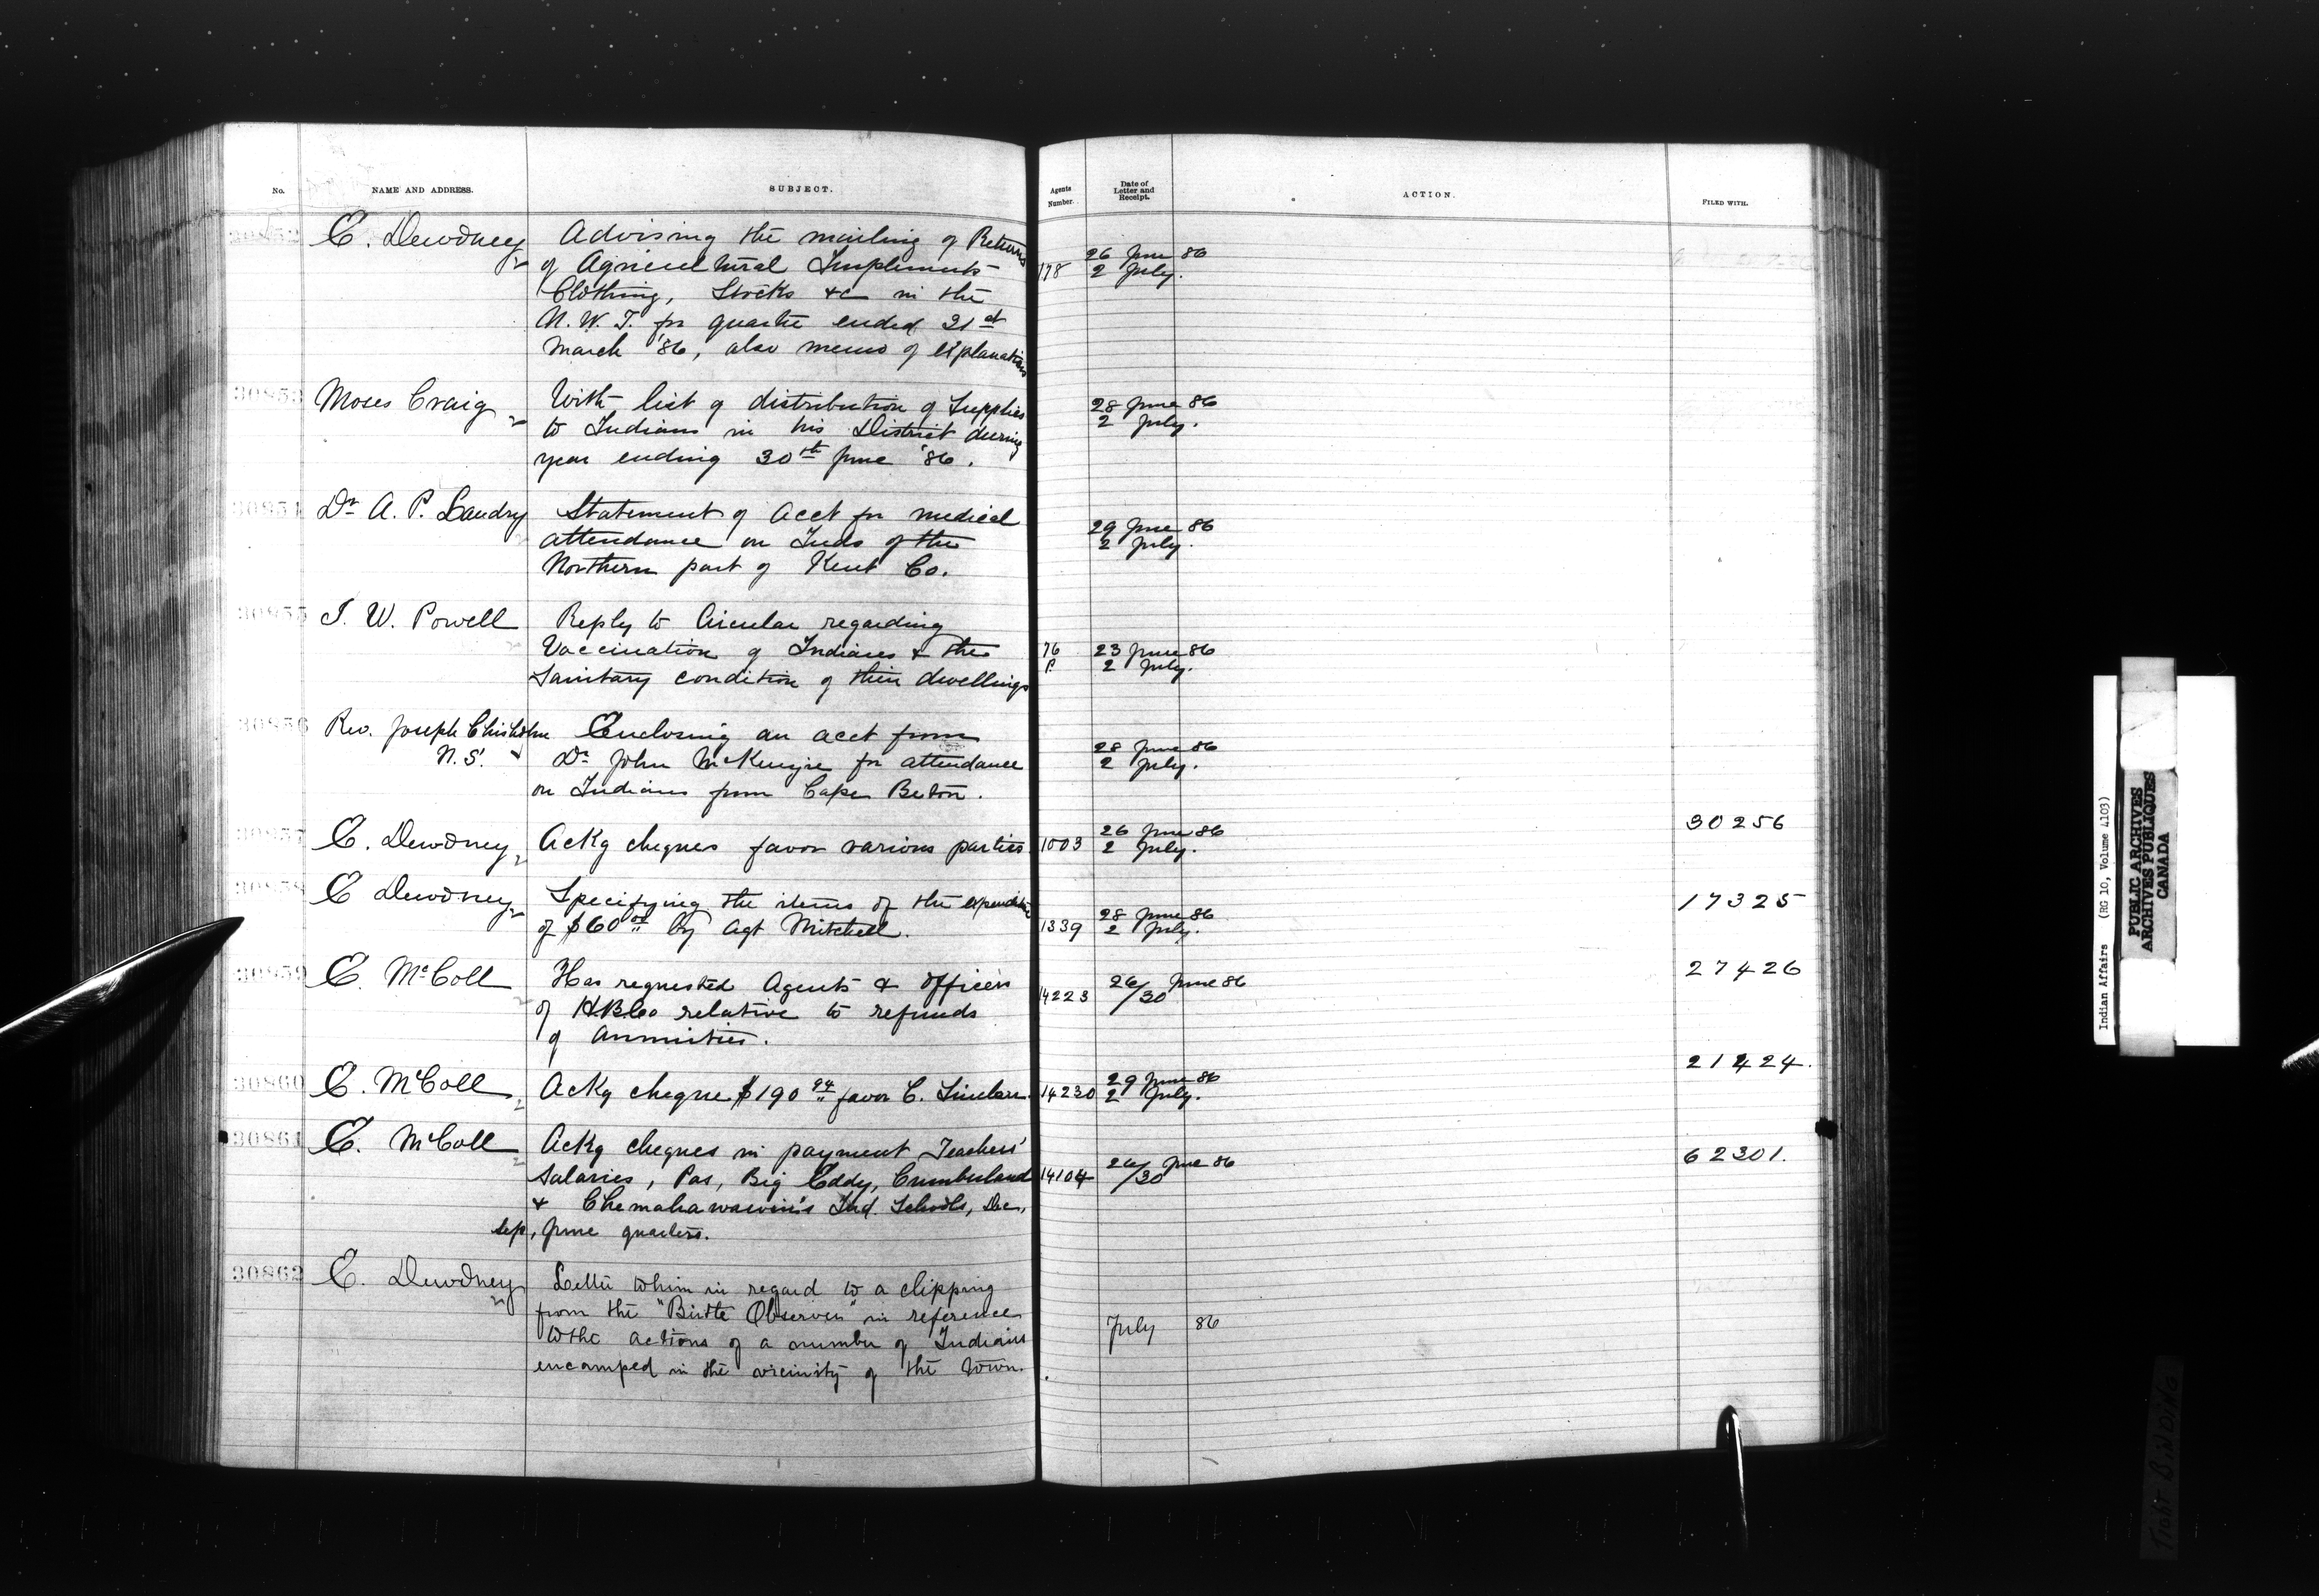 No. NAME AND ADDRESS. SUBJECT. Agents Number. Date of Letter and Receipt. ACTION. FILED WITH.
30852 E. Dewdney Advising the mailing of Returns
of Agricultural Implements 178 26 June 86
Clothing, Stocks &c in the 2 July.
N.W.T. for quarter ended 31st
March '86, also memo of explanations
30853 Moses Craig With list of distribution of Supplies 28 June 86
to Indians in his District during 2 July.
year ending 30th June '86.
30854 Dr A. P. Landry Statement of acct for medical 29 June 86
attendance on Inds of the 2 July.
Northern part of Kent Co.
30855 I. W. Powell Reply to Circular regarding
Vaccination of Indians & the 76 23 June 86
Sanitary condition of their dwellings P. 2 July.
30856 Rev. Joseph Chisholm Enclosing an acct from 28 June 86
N.S. Dr John McKenzie for attendance 2 July.
on Indians from Cape Breton.
30857 E. Dewdney Ackg cheques favor various parties 1003 26 June 86 30256
2 July.
30858 E Dewdney Specifying the items of the expenditure 28 June 86 17325
of $60.00 by Agt Mitchell. 1339 2 July.
30859 E. McColl Has requested Agents & officers 14223 26/30 June 86 27426
of H.B.Co relative to refunds
of annuities.
30860 E. McColl Ackg cheque $190.94 favor C. Sinclair. 14230 29 June 86 21424.
2 July.
30861 E. McColl Ackg cheques in payment Teachers' 62301.
Salaries, Pas, Big Eddy, Cumberland 14104 26/30 June 86
& Chemahawawin's Ind. Schools, Dec,
Sep, June quarters.
30862 E. Dewdney Letter to him in regard to a clipping
from the "Birtle Observer" in reference
to the actions of a number of Indians July 86
encamped in the vicinity of the town.
Indian Affairs (RG 10, Volume 4103)
PUBLIC ARCHIVES
ARCHIVES PUBLIQUES
CANADA
Tight Binding